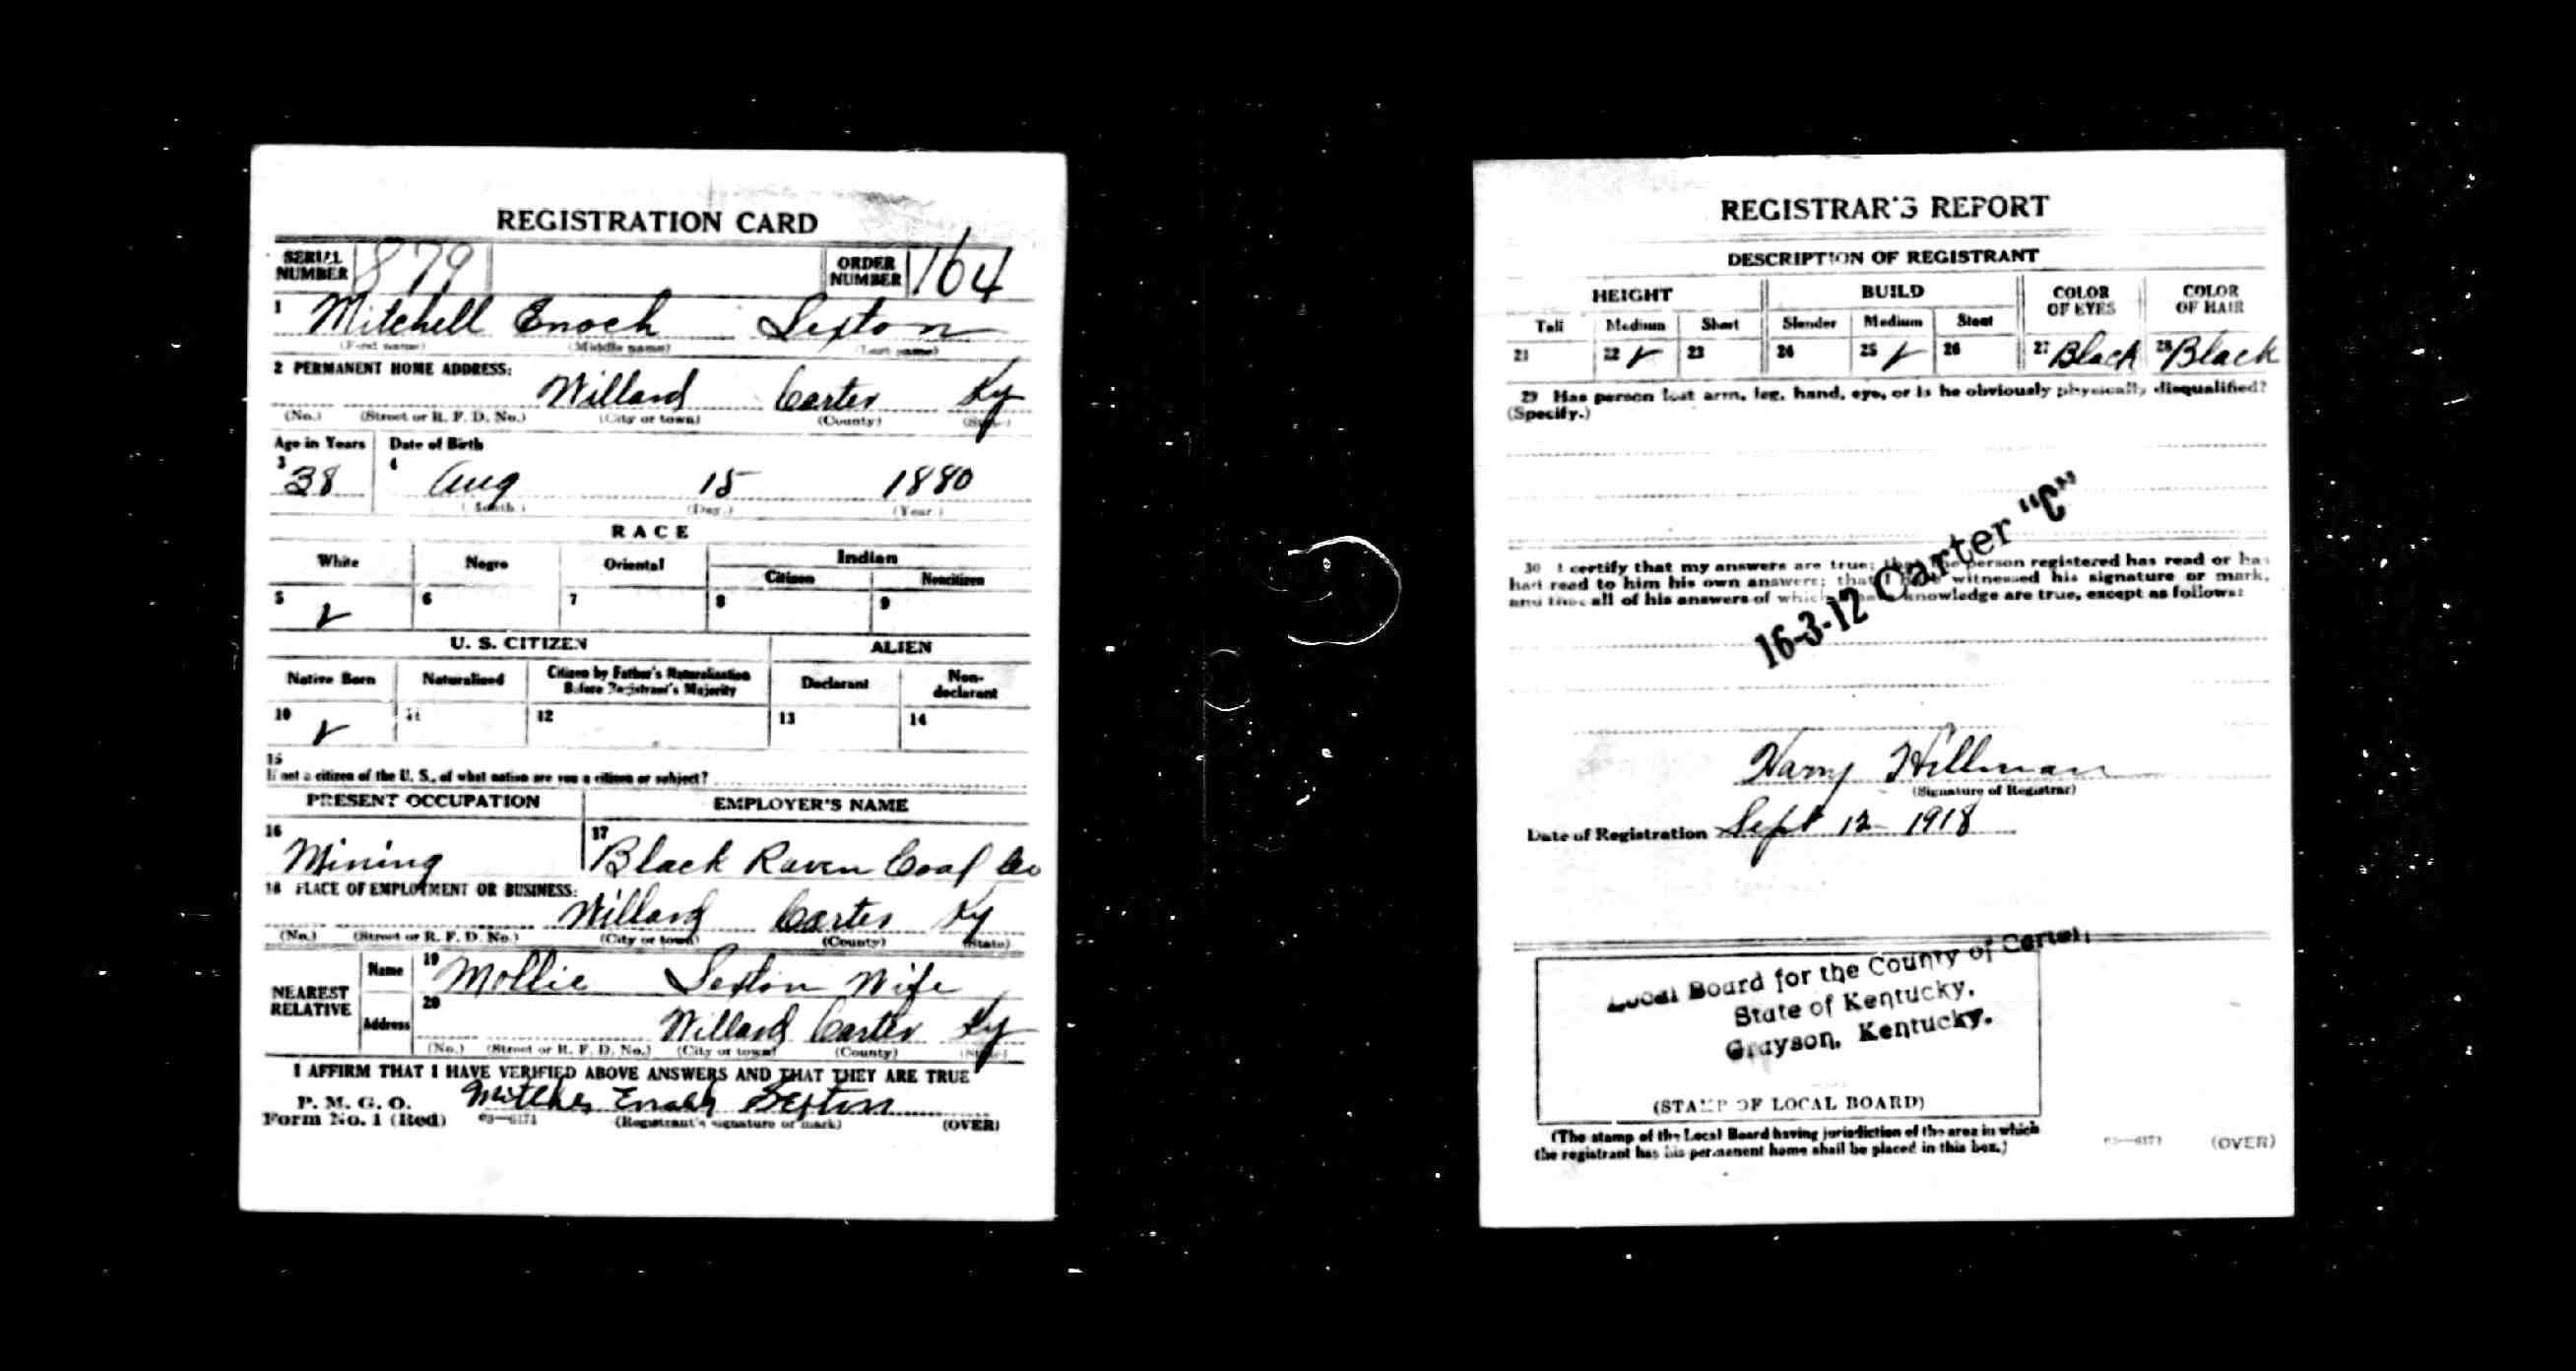 REGISTRATION CARD
SERIAL NUMBER 879 ORDER NUMBER 164
1 Mitchell Enoch Sexton
(First name) (Middle name) (Last name)
2 PERMANENT HOME ADDRESS:
Willard Carter Ky
(No.) (Street or R. F. D. No.) (City or town) (County) (State)
Age in Years Date of Birth
3 38 4 Aug 15 1880
(Month.) (Day.) (Year.)
RACE
White Negro Oriental Indian
Citizen Noncitizen
5 ✓ 6 7 8 9
U. S. CITIZEN ALIEN
Native Born Naturalized Citizen by Father's Naturalization Before Registrant's Majority Declarant Non-declarant
10 ✓ 11 12 13 14
15
If not a citizen of the U. S., of what nation are you a citizen or subject?
PRESENT OCCUPATION EMPLOYER'S NAME
16 Mining 17 Black Raven Coal Co
18 PLACE OF EMPLOYMENT OR BUSINESS:
Willard Carter Ky
(No.) (Street or R. F. D. No.) (City or town) (County) (State)
NEAREST RELATIVE Name 19 Mollie Sexton Wife
Address 20 Willard Carter Ky
(No.) (Street or R. F. D. No.) (City or town) (County) (State)
I AFFIRM THAT I HAVE VERIFIED ABOVE ANSWERS AND THAT THEY ARE TRUE
P. M. G. O.
Form No. 1 (Red) 03—6171 Mitchel Enoch Sexton
(Registrant's signature or mark) (OVER)
REGISTRAR'S REPORT
DESCRIPTION OF REGISTRANT
HEIGHT BUILD COLOR OF EYES COLOR OF HAIR
Tall Medium Short Slender Medium Stout
21 22 ✓ 23 24 25 ✓ 26 27 Black 28 Black
29 Has person lost arm, leg, hand, eye, or is he obviously physically disqualified?
(Specify.)
16-3-12 Carter "C"
30 I certify that my answers are true; that the person registered has read or has
had read to him his own answers; that I have witnessed his signature or mark,
and that all of his answers of which I have knowledge are true, except as follows:
Harry Hillman
(Signature of Registrar)
Date of Registration Sept 12 1918
Local Board for the County of Carter,
State of Kentucky.
Grayson, Kentucky.
(STAMP OF LOCAL BOARD)
(The stamp of the Local Board having jurisdiction of the area in which
the registrant has his permanent home shall be placed in this box.)
03—6171 (OVER)